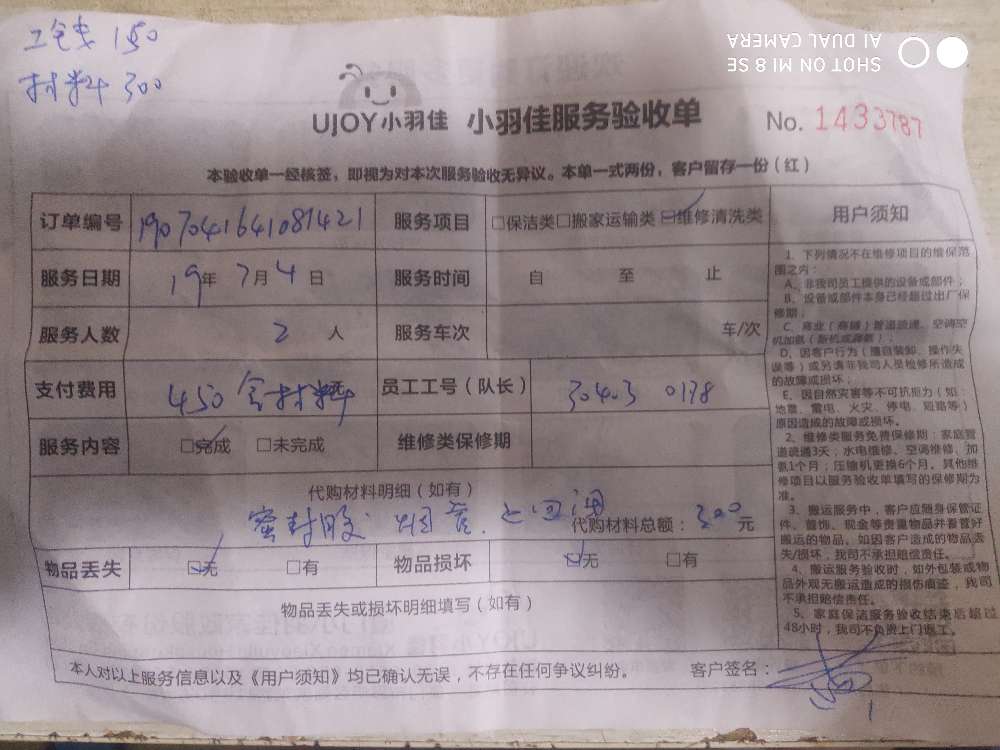 工钱 150
材料 300
SHOT ON MI 8 SE
AI DUAL CAMERA
UJOY小羽佳 小羽佳服务验收单 No. 1433787
本验收单一经核签，即视为对本次服务验收无异议。本单一式两份，客户留存一份（红）
订单编号 1907041641081421 服务项目 □保洁类□搬家运输类□维修清洗类
服务日期 19年 7月 4日 服务时间 自 至 止
服务人数 2 人 服务车次 车/次
支付费用 450 含材料 员工工号（队长） 30403 0138
服务内容 □完成 □未完成 维修类保修期
代购材料明细（如有）
密封胶 代购材料总额：300元
物品丢失 □无 □有 物品损坏 □无 □有
物品丢失或损坏明细填写（如有）
本人对以上服务信息以及《用户须知》均已确认无误，不存在任何争议纠纷。 客户签名：
用户须知
1、下列情况不在维修项目的维保范
围之内：
A、非我司员工提供的设备或部件；
B、设备或部件本身已经超过出厂保
修期；
C、商业（商铺）管道疏通、空调空
机加氨（新机或移机）；
D、因客户行为（擅自装卸、操作失
误等）或另请非我司人员检修所造成
的故障或损坏；
E、因自然灾害等不可抗拒力（如：
地震、雷电、火灾、停电、短路等）
原因造成的故障或损坏。
2、维修类服务免费保修期：家庭管
道疏通3天，水电维修、空调维修、加
氨1个月；压缩机更换6个月。其他维
修项目以服务验收单填写的保修期为
准。
3、搬运服务中，客户应随身保管证
件、首饰、现金等贵重物品并看管好
搬运的物品。如因客户造成的物品丢
失/损坏，我司不承担赔偿责任。
4、搬运服务验收时，如外包装或物
品外观无搬运造成的损伤痕迹，我司
不承担赔偿责任。
5、家庭保洁服务验收结束后超过
48小时，我司不负责上门返工。